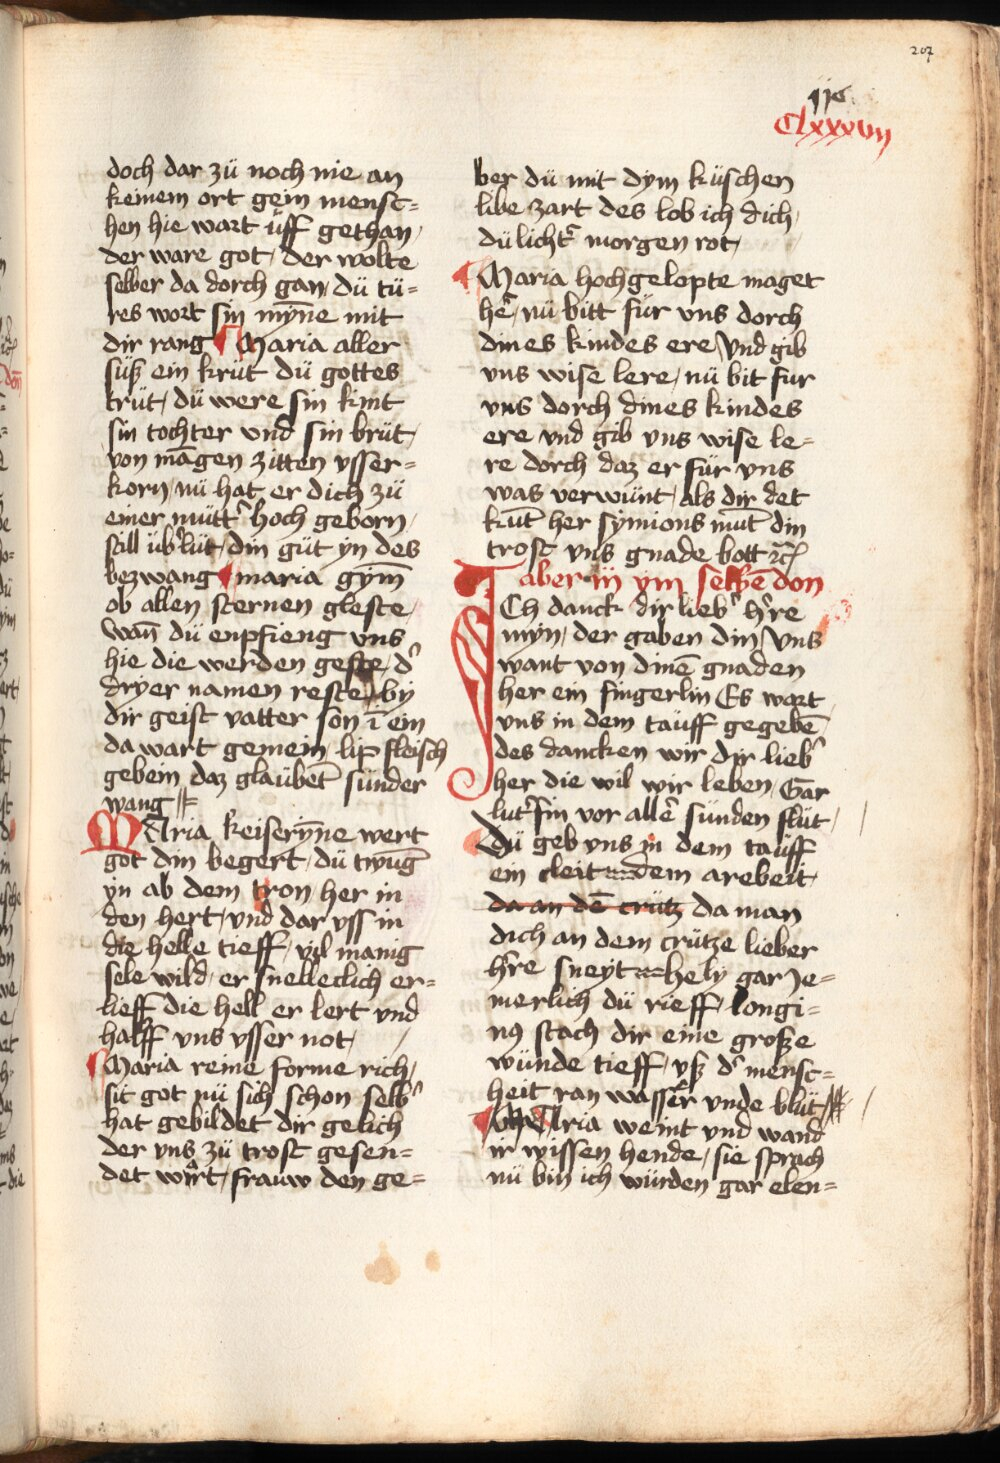 207
jjc
Clxxxvij
doch dar zü noch nie an
keinem ort gein mensc=
hen hie wart üff gethan,
der ware got, der wolte
selber da dorch gan, dü tü=
res wort sin mỹne mit
dir rang Maria aller
süß ein krüt dü gottes
trüt, dü were sin kint
sin tochter vnd sin brüt,
von māgen zitten vsser=
korn, nü hat er dich zü
einer müttˀ hoch geborn,
still übˀlüt, din güt yn des
bezwang maria gym̄
ob allen sternen gleste,
wan̄ dü enpfieng vns
hie die werden geste, dˀ
dryer namen reste by
dir geist vatter son ī ein
da wart gemein lip fleisch
gebein daz glaübet̄ sünder
wang
MAria keiserỹne wert
got din begert, dü twuḡ
yn ab dem tron her in
den hert, vnd dar vss in
die helle tieff, vil manig
sele wild, er snelleclich er=
lieff die hell er lert vnd
halff vns vsser not,
Maria reine forme rich,
sit got nü sich schon selbˀ
hat gebildet dir gelich
der vns zü trost gesen=
det wart, frauw den ge=
ber dü mit dym küschen
libe zart des lob ich dich,
dü lichtˀ morgen rot,
Maria hochgelopte maget
hēr, nü bitt für vns dorch
dines kindes ere vnd gib
vns wise lere, nü bit fur
vns dorch dines kindes
ere vnd gib vns wise le=
re dorch daz er für vns
was verwünt, als dir det
kut̄ her symions mut̄ din
trost vns gnade bott ꝛc̄
aber iij ym selbē don
ICh danck dir liebˀ hˀre
myn, der gaben din vns
want von dinē gnaden
her ein fingerlin Es wort
vns in dem taüff gegebē,
des dancken wir dir liebˀ
her die wil wir leben, Gar
lutˀ sin vor allē sünden flüt,
Dü geb vns in dem taüff
ein cleit dem arebeit,
da an dē crütz da man
dich an dem crütze lieber
hˀre sneyt hely gar Je=
merlich dü rieff, longi=
nꝰ stach dir eine große
wünde tieff, vß dˀ mensc=
heit ran wasser vnde blüt
MAria weint vnd wand
ir wissen hende, sie sprach
nü bin ich würden gar elen=